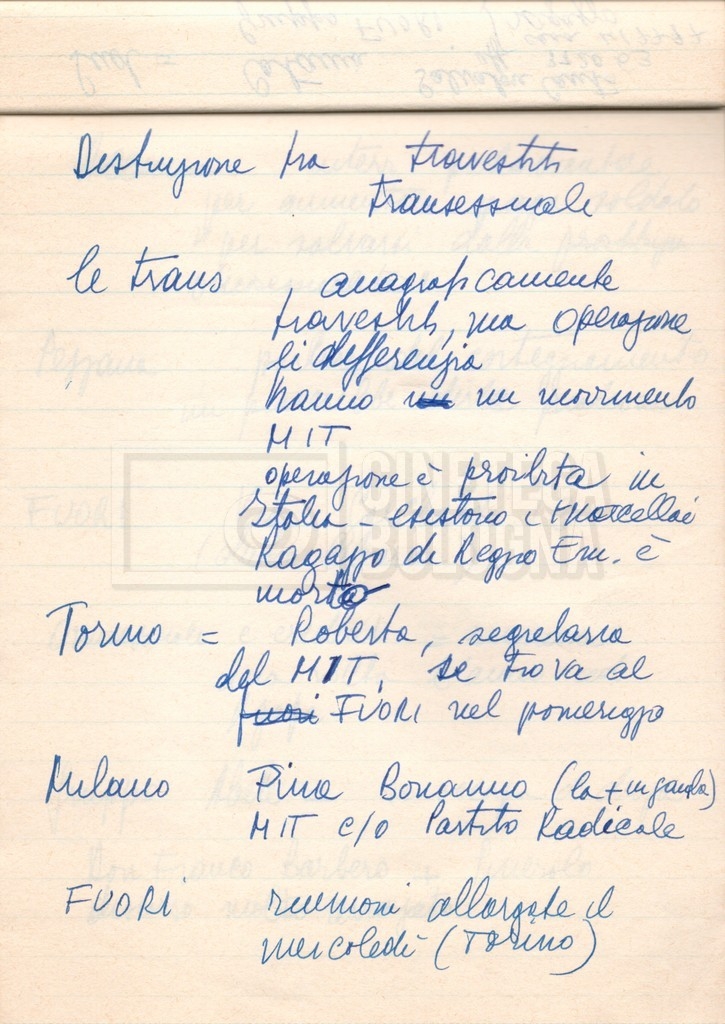 Distinzione tra travestiti
transessuale
le trans, anagraficamente
travestiti, ma operazione
li differenzia
hanno un un movimento
MIT
operazione è proibita in
Italia - esistono i
Ragazzo di Reggio Em. è
morto
Torino = Roberta, segretaria
del MIT, se trova al
fuori FUORI nel pomeriggio
Milano Pina Bonanno (la + in gamba)
MIT c/o Partito Radicale
FUORI riunioni allargate il
mercoledì (Torino)
CINETECA
BOLOGNA